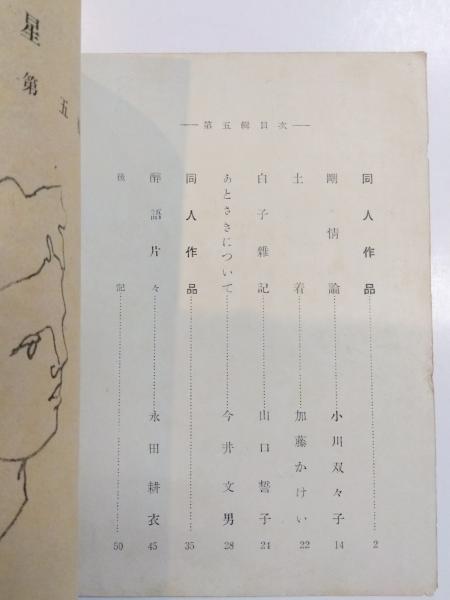 星第五
――第五輯目次――
同人作品……2
剛情論……小川双々子 14
土着……加藤かけい 22
白子雜記……山口誓子 24
あとさきについて……今井文男 28
同人作品……35
酔語片々……永田耕衣 45
後記……50